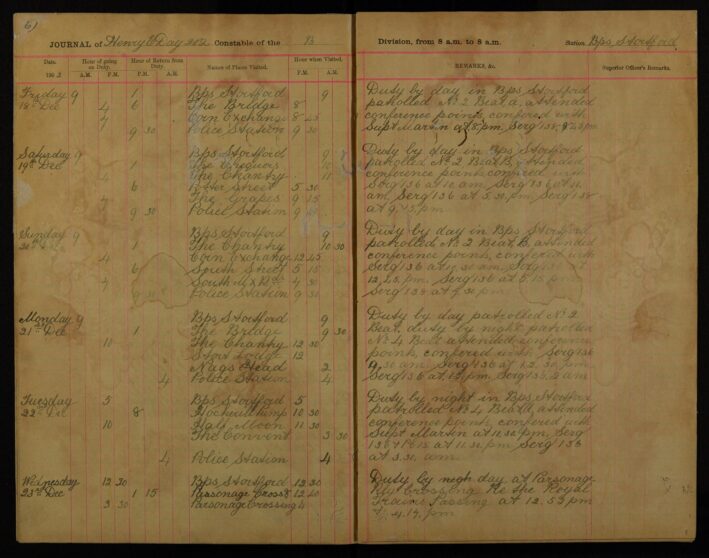 61
JOURNAL of Henry Day 202 Constable of the B Division, from 8 a.m. to 8 a.m. Station Bps Stortford
Date. Hour of going on Duty. Hour of Return from Duty. Names of Places Visited. Hour when Visited. REMARKS, &c. Superior Officer's Remarks.
190 A.M. P.M. A.M. P.M. A.M. P.M.
Friday 9 1 Bps Stortford 9
18th Dec 4 6 The Bridge 8
7 Corn Exchange 8 25
9 30 Police Station 9 30
Duty by day in Bps Stortford
patrolled No 2 Beat, attended
conference points, confered with
Supt Martin at 8 pm, Serg 138
Saturday 9 Bps Stortford 9
19th Dec 1 10
4 The Chantry 11
6 Potter Street 5 30
7 The Grapes 9 15
9 30 Police Station 9
Duty by day in Bps Stortford
patrolled No 2 Beat B, attended
conference points, confered with
Serg 136 at 10 am, Serg 136 at 11
am, Serg 136 at 5.30 pm, Serg 138
at 9.15 pm
Sunday 9 Bps Stortford 9
20th Dec 1 The Chantry 10 30
4 Corn Exchange 12 45
6 South Street 5 15
7 South 4
9 30 Police Station 9 30
Duty by day in Bps Stortford
patrolled No 2 Beat B, attended
conference points, confered with
Serg 136 at 10.30 am, Serg 136 at
pm, Serg 136 at 5.15 pm
Serg 138 at pm
Monday 9 Bps Stortford 9
21st Dec 1 The Bridge 9 30
10 The Chantry 12 30
Stort Lodge 12
Nags Head 2
4 Police Station 4
Duty by day patrolled No 2
Beat, duty by night patrolled
No 4 Beat attended conference
points, confered with Serg 136
9.30 am, Serg 136 at 12.30 pm
Serg 136 at 12 pm, Serg 136 2 am
Tuesday 5 Bps Stortford 5
22nd Dec 8 Hockerill Pump 10 30
10 Half Moon 11 30
The Convent 3 30
4 Police Station 4
Duty by night in Bps Stortford
patrolled No 4 Beat, attended
conference points, confered with
Supt Martin at pm, Serg
136 at 11.30 pm, Serg 136
at 3.30 am
Wednesday 12 30 Bps Stortford 12 30
23rd Dec 1 15 Parsonage Cross 12 40
3 30 Parsonage Crossing 4
Duty by day at Parsonage
Rly Crossing Re the Royal
Trains Passing at 12.53 pm
& 4.14 pm